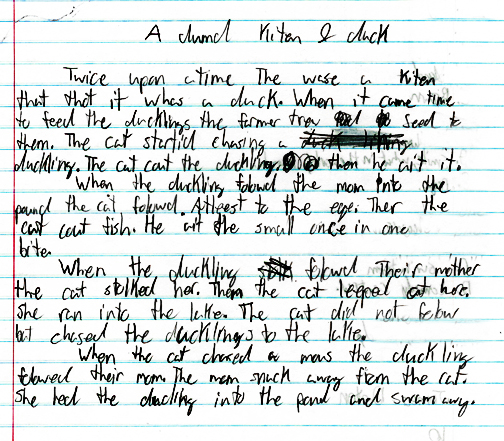 A dumd Kiten & duck
Twice upon a time The wase a Kiten
that thot it whas a duck. When it came time
to feed the ducklings the farmer trew seed to
them. The cat startid chasing a
duckling. The cat caut the duckling. then he ait it.
When the duckling folowd the mom into the
pound the cat folowd. Atleest to the ege. Ther the
cat caut fish. He ait the small once in one
bite.
When the duckling folowd Their mother
the cat stolked her. Then the cat leaped at her.
She ran into the lake. The cat did not folow
but chased the ducklings to the lake.
When the cat chased a mous the duckling
folowed their mom. The mom snuck away from the cat.
She led the duckling into the pond and swam away.